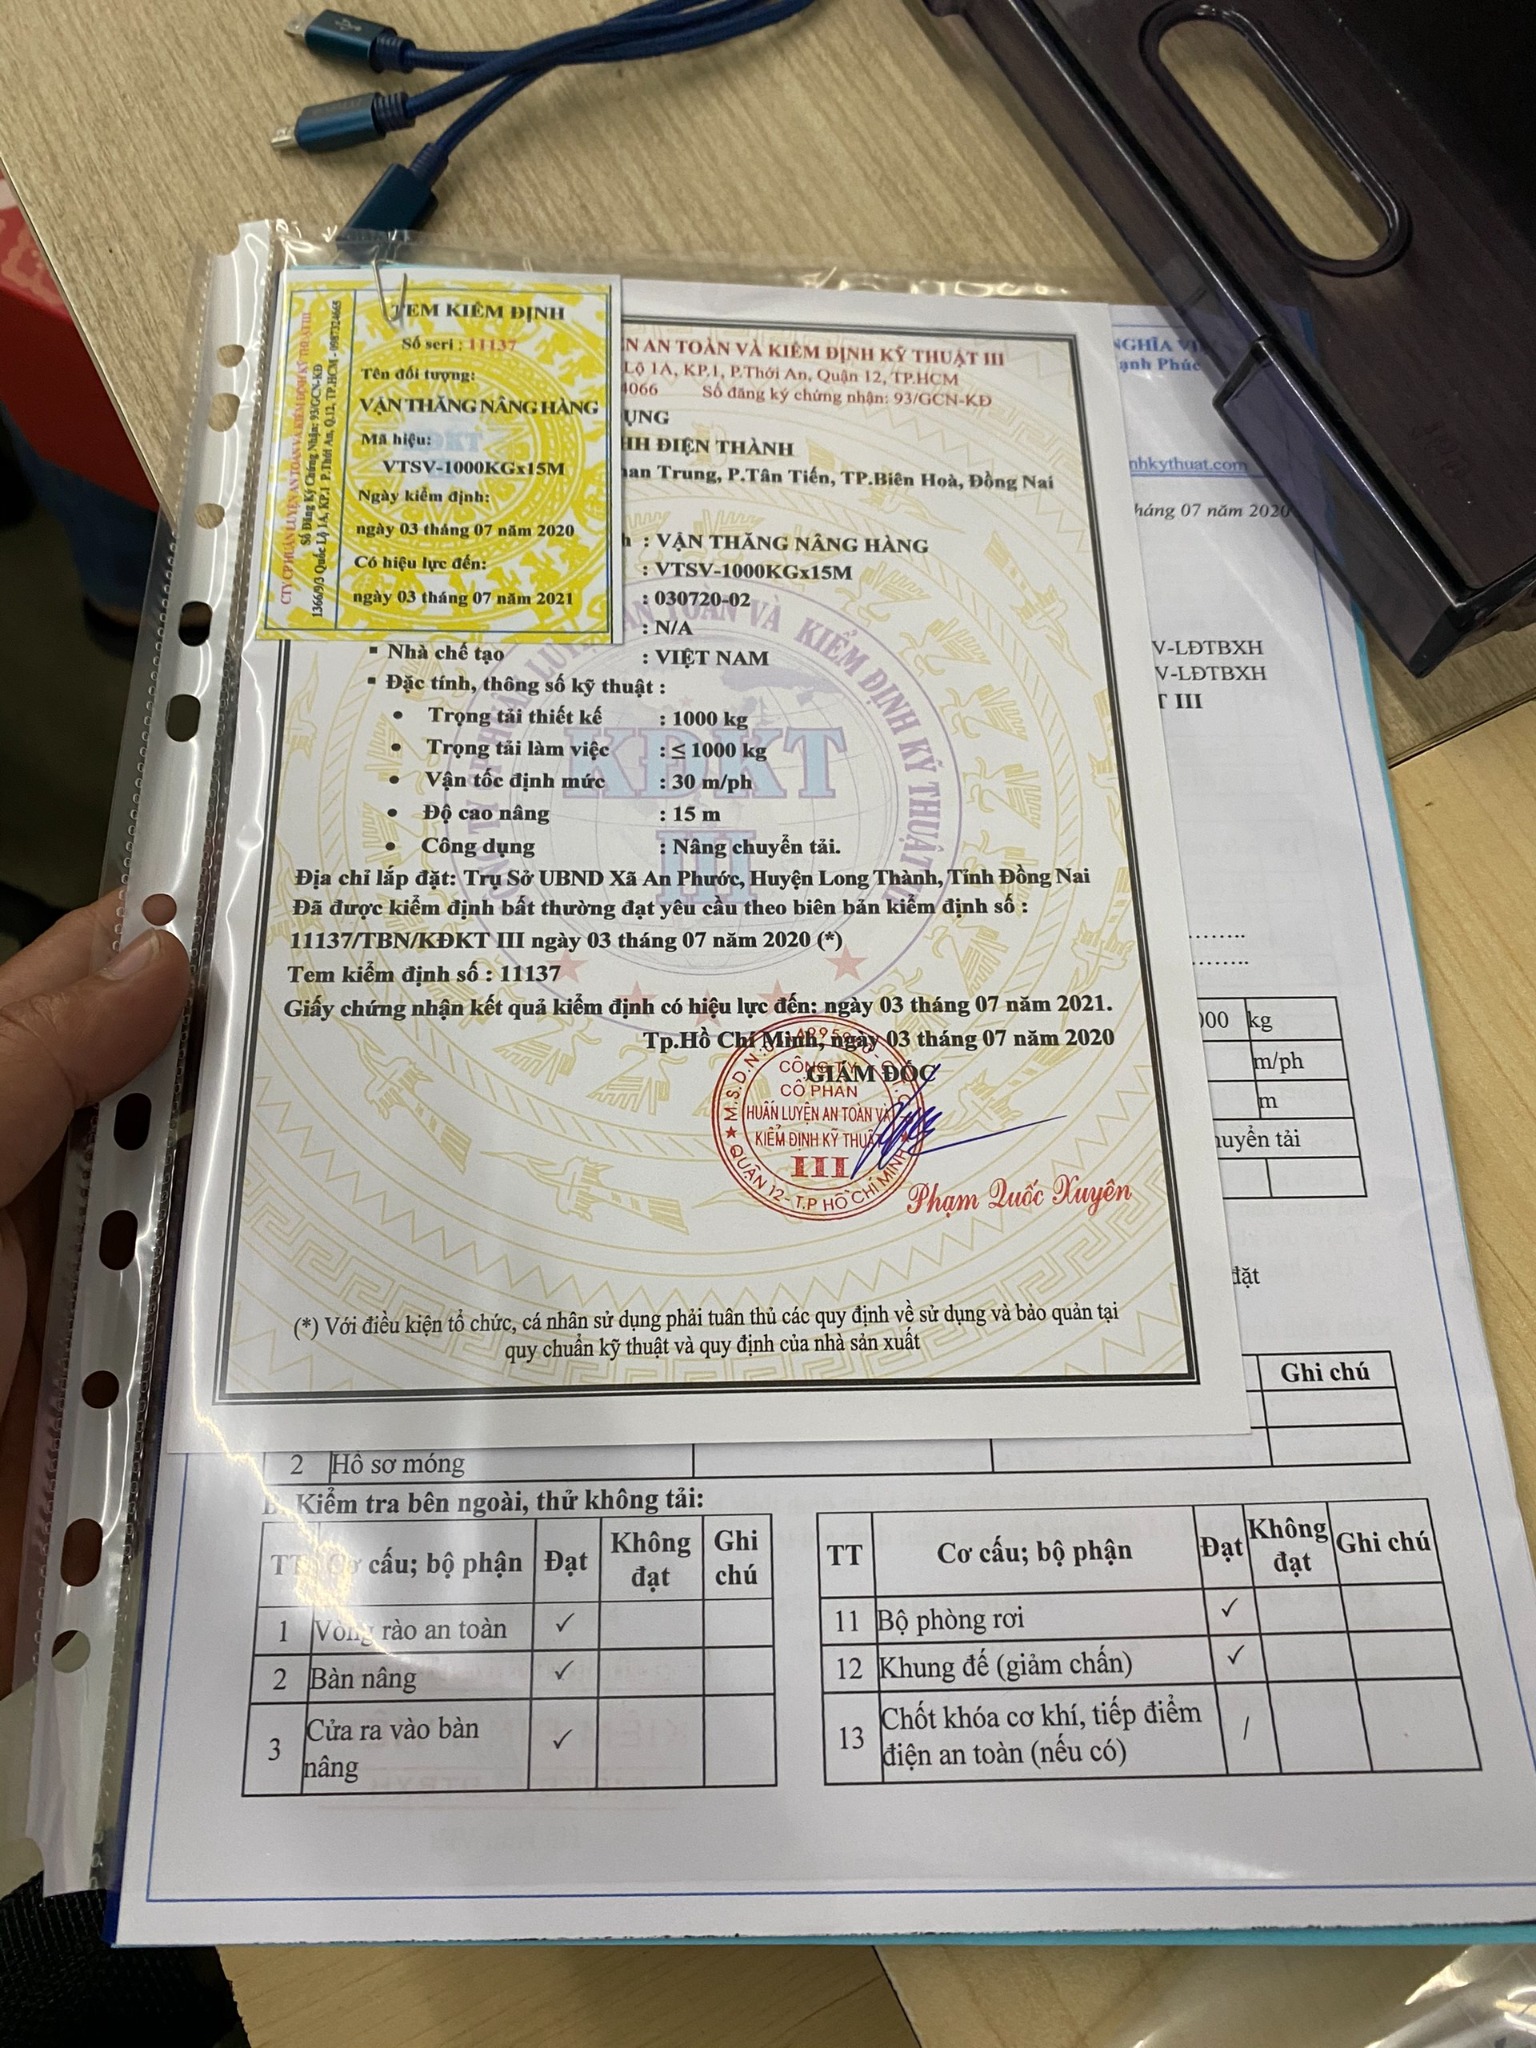 TEM KIỂM ĐỊNH
Số seri : 11137
Tên đối tượng:
VẬN THĂNG NÂNG HÀNG
Mã hiệu:
VTSV-1000KGx15M
Ngày kiểm định:
ngày 03 tháng 07 năm 2020
Có hiệu lực đến:
ngày 03 tháng 07 năm 2021
CTY CP HUẤN LUYỆN AN TOÀN VÀ KIỂM ĐỊNH KỸ THUẬT III
Số Đăng Ký Chứng Nhận: 93/GCN-KĐ
1366/9/3 Quốc Lộ 1A, KP.1 P.Thới An, Q.12, TP.HCM - 0987324668
N AN TOÀN VÀ KIỂM ĐỊNH KỸ THUẬT III
Lộ 1A, KP.1, P.Thới An, Quận 12, TP.HCM
4066 Số đăng ký chứng nhận: 93/GCN-KĐ
ỤNG
HH ĐIỆN THÀNH
an Trung, P.Tân Tiến, TP.Biên Hoà, Đồng Nai
h : VẬN THĂNG NÂNG HÀNG
: VTSV-1000KGx15M
: 030720-02
: N/A
▪ Nhà chế tạo : VIỆT NAM
▪ Đặc tính, thông số kỹ thuật :
• Trọng tải thiết kế : 1000 kg
• Trọng tải làm việc : ≤ 1000 kg
• Vận tốc định mức : 30 m/ph
• Độ cao nâng : 15 m
• Công dụng : Nâng chuyển tải.
Địa chỉ lắp đặt: Trụ Sở UBND Xã An Phước, Huyện Long Thành, Tỉnh Đồng Nai
Đã được kiểm định bất thường đạt yêu cầu theo biên bản kiểm định số :
11137/TBN/KĐKT III ngày 03 tháng 07 năm 2020 (*)
Tem kiểm định số : 11137
Giấy chứng nhận kết quả kiểm định có hiệu lực đến: ngày 03 tháng 07 năm 2021.
Tp.Hồ Chí Minh, ngày 03 tháng 07 năm 2020
GIÁM ĐỐC
CÔNG TY
CỔ PHẦN
HUẤN LUYỆN AN TOÀN VÀ
KIỂM ĐỊNH KỸ THUẬT
III
QUẬN 12 - T.P HỒ CHÍ MINH
Phạm Quốc Xuyên
(*) Với điều kiện tổ chức, cá nhân sử dụng phải tuân thủ các quy định về sử dụng và bảo quản tại
quy chuẩn kỹ thuật và quy định của nhà sản xuất
KĐKT
III
NGHĨA VI
ạnh Phúc
nhkythuat.com
háng 07 năm 2020
V-LĐTBXH
V-LĐTBXH
T III
000 kg
m/ph
m
huyển tải
đặt
Ghi chú
2 Hồ sơ móng
B. Kiểm tra bên ngoài, thử không tải:
TT Cơ cấu; bộ phận Đạt Không đạt Ghi chú
1 Vòng rào an toàn ✓
2 Bàn nâng ✓
3 Cửa ra vào bàn nâng ✓
TT Cơ cấu; bộ phận Đạt Không đạt Ghi chú
11 Bộ phòng rơi ✓
12 Khung đế (giảm chấn) ✓
13 Chốt khóa cơ khí, tiếp điểm điện an toàn (nếu có) /